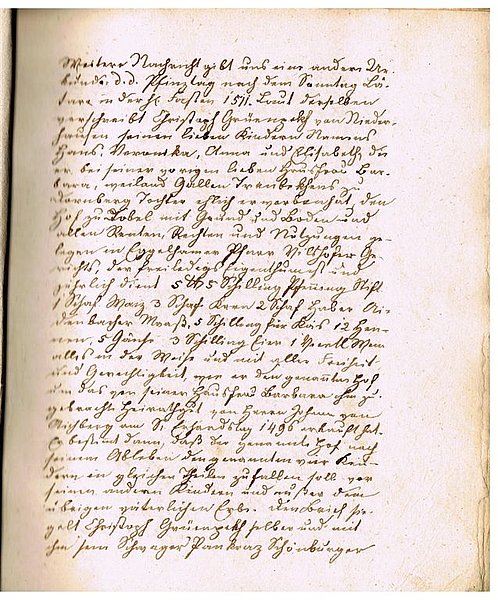 Weitere Nachricht gibt uns eine andere Ur-
kunde d.d. Pfinztag nach dem Sonntag Lä-
tare in der hl. Fasten 1511. Laut derselben
verschreibt Christoph Grüenpekh von Nieder-
hausen seinen lieben Kindern Namens
Hans, Veronika, Anna und Elisabeth, die
er bei seiner vorigen lieben Hausfrau Bar-
bara, weiland Gallen Traubekhens zu
Dornberg Tochter ehlich erworben hat, den
Hof zu Tobel mit Grund und Boden und
allen Renten, Rechten und Nutzungen ge-
legen in Egglhamer Pfarr Vilshofer Ge-
richts, der freiledigs Eigenthum ist und
jährlich dient 5 ℔ 5 Schilling Pfenning Stift
Schaf Waiz 3 Schaf Korn 2 Schaf Haber Ai-
denbacher Maaß, 5 Schilling für Käs 12 Hen-
nen, 5 Gänse 3 Schilling Eier 1
alles in der Weise und mit aller Freiheit
und Gerechtigkeit, wie er den genannten Hof
um das von seiner Hausfrau Barbara ihm zu-
gebrachte Heirathgut von Herrn Johann von
Aichberg am St. Erhardstag 1496 erkauft hat.
Er bestimt dann, daß der genannte Hof nach
seinem Ableben den genannten vier Kin-
dern in gleichen Theilen zufallen soll vor
seinen andern Kindern und außer dem
übrigen väterlichen Erbe. Den Brief sie-
gelt Christoph Grüenpekh selber und mit
ihm sein Schwager Pankraz Schönburger